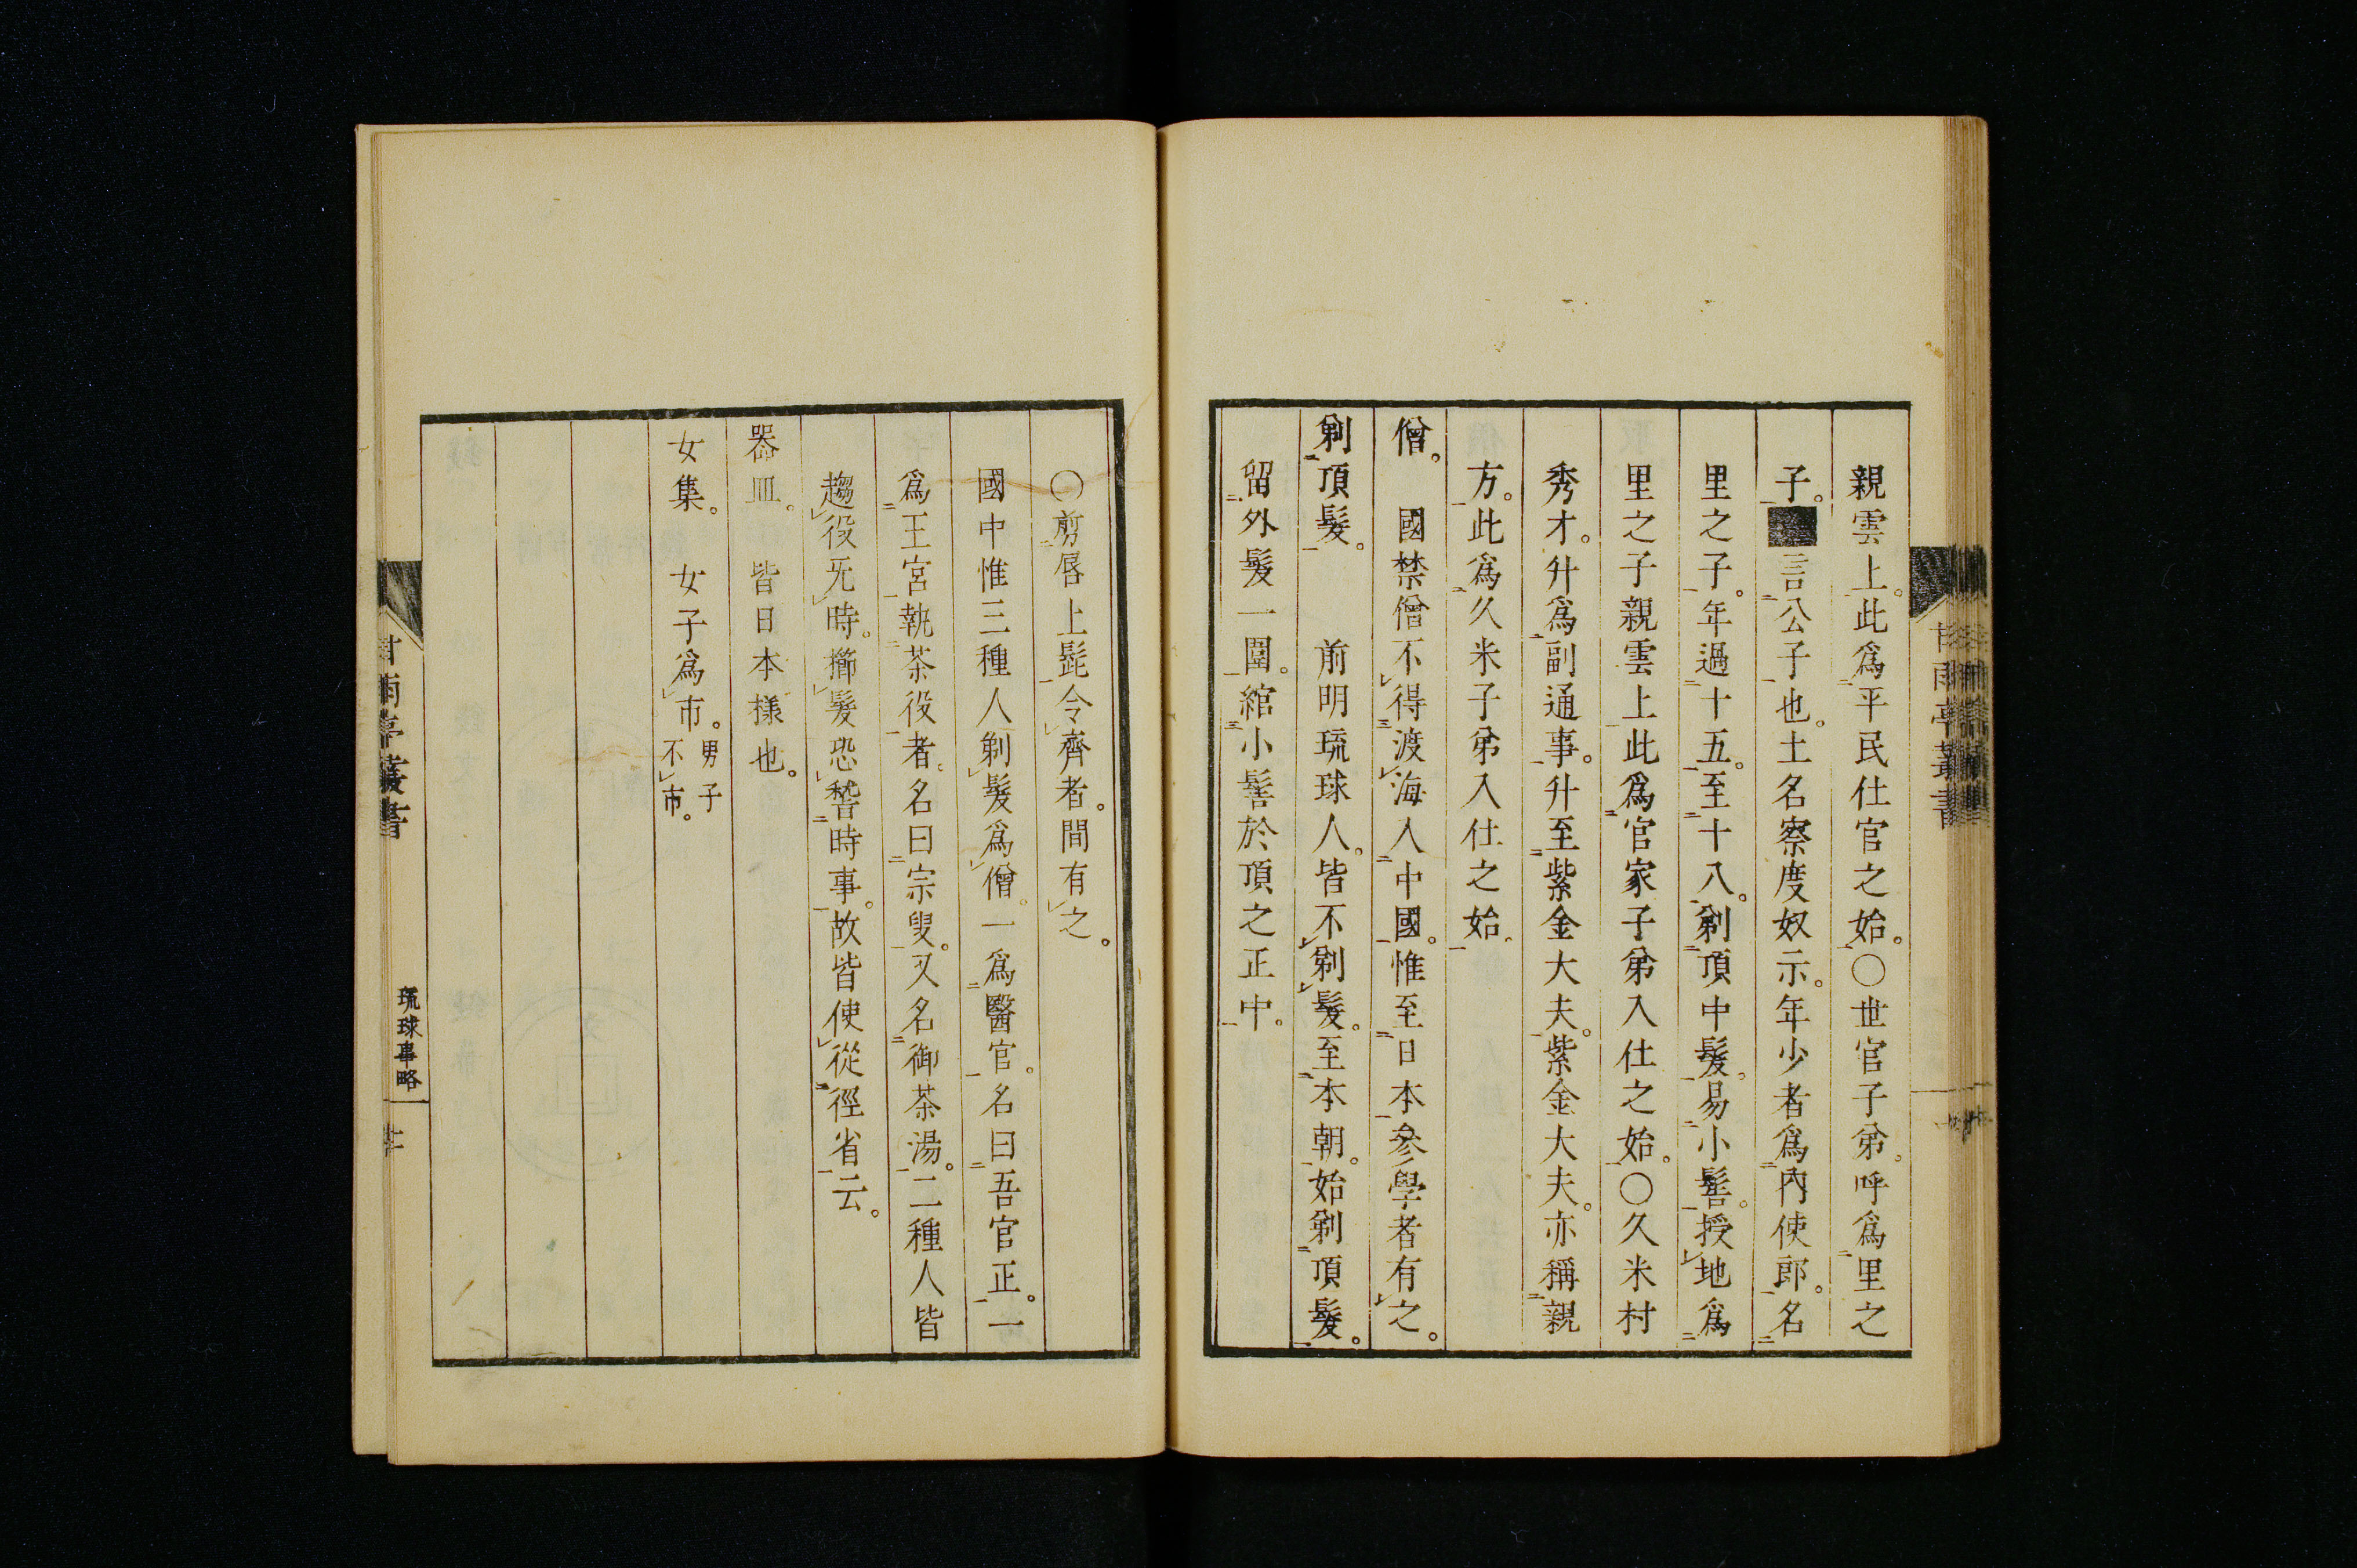 親雲上。此爲平民仕官之始。○世官子弟。呼爲里之
子。■言公子也。土名察度奴示。年少者爲内使郎。名
里之子。年過十五。至十八。剃頂中髮。易小髻。授地爲
里之子親雲上此爲官家子弟入仕之始。○久米村
秀才。升爲副通事。升至紫金大夫。紫金大夫。亦稱親
方。此爲久米子弟入仕之始。
僧。 國禁僧不得渡海入中國。惟至日本參學者有之。
剃頂髮。 前明琉球人。皆不剃髮。至本朝。始剃頂髮。
留外髮一圍。綰小髻於頂之正中。
○剪唇上髭令齊者。間有之。
國中惟三種人剃髮爲僧。一爲醫官。名曰吾官正。一
爲王宮執茶役者。名曰宗叟。又名御茶湯。二種人皆
趨役无時。擳髮恐稽時事。故皆使從徑省云。
器皿。 皆日本様也。
女集。 女子爲市。男子
不市。
甘雨亭叢書
琉球事略